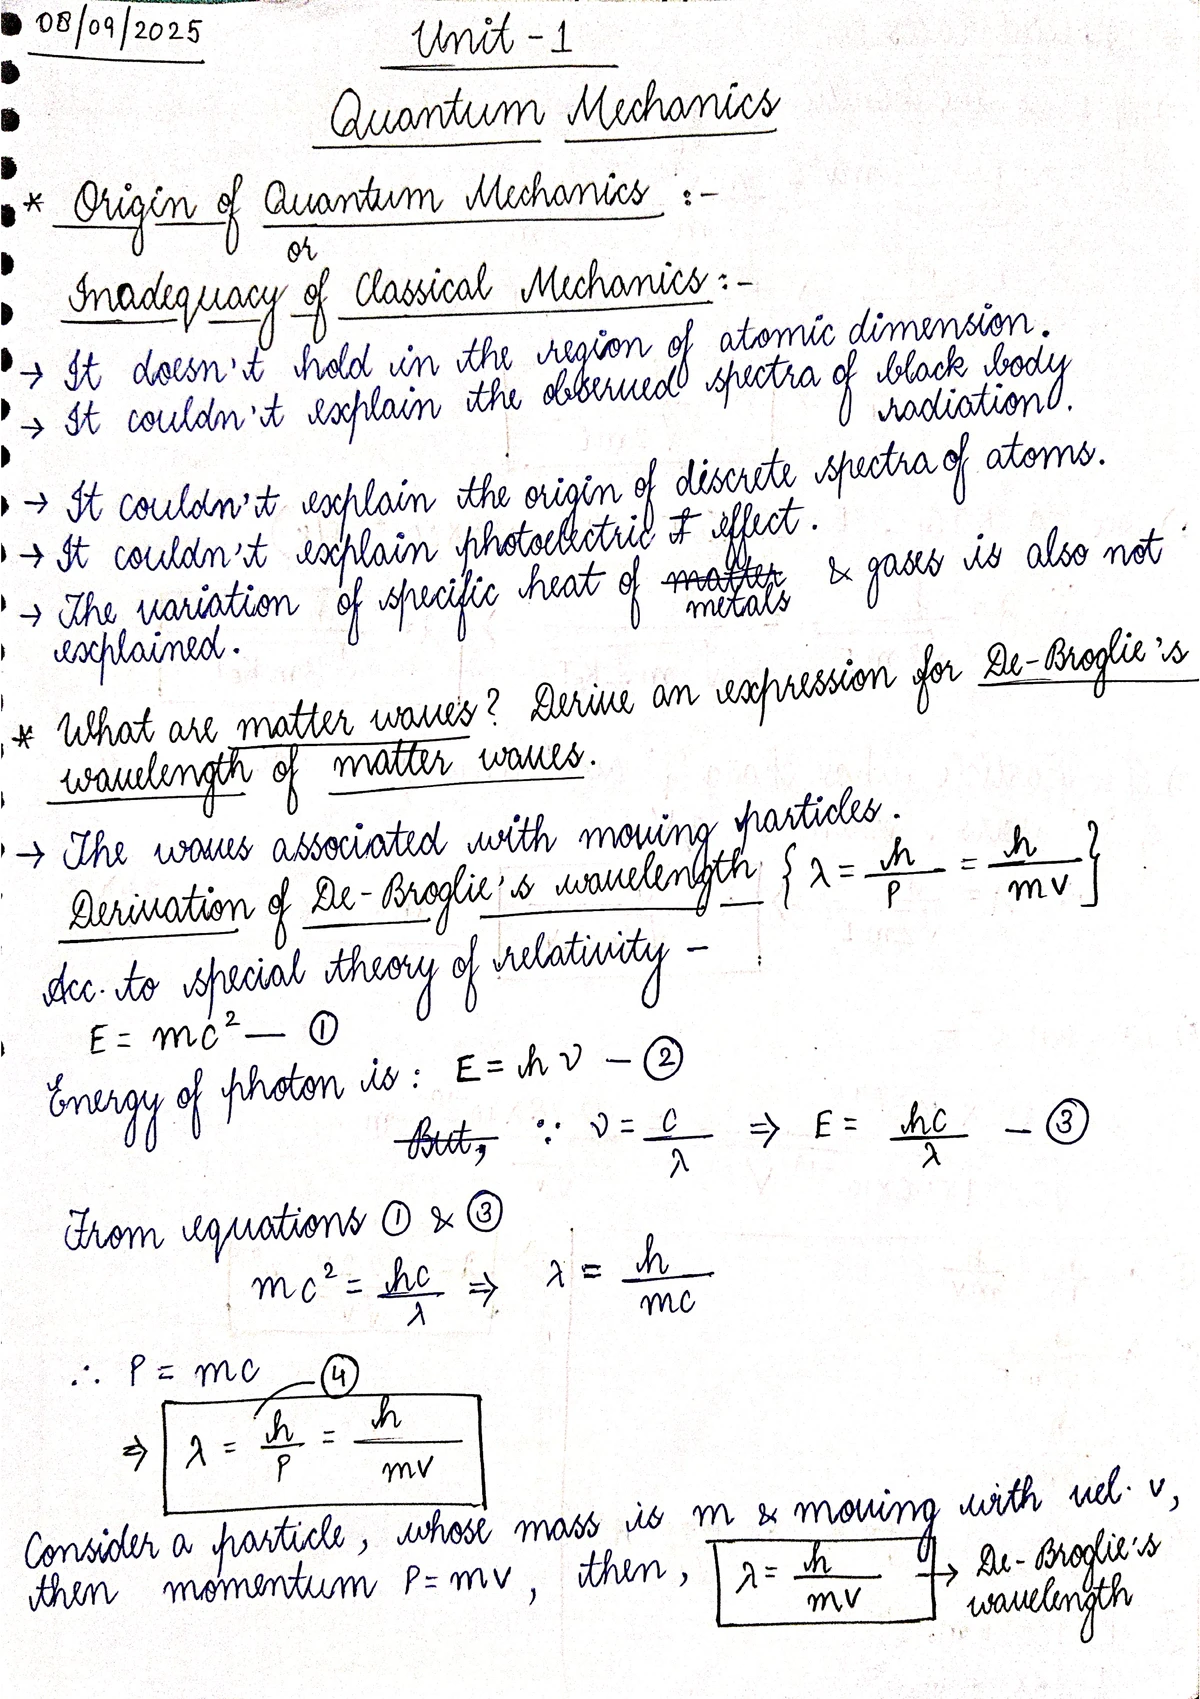 08/09/2025
Unit - 1
Quantum Mechanics
* Origin of Quantum Mechanics :-
or
Inadequacy of Classical Mechanics :-
→ It doesn't hold in the region of atomic dimension.
→ It couldn't explain the observed spectra of black body
radiation.
→ It couldn't explain the origin of discrete spectra of atoms.
→ It couldn't explain photoelectric effect.
→ The variation of specific heat of matter & gases is also not
metals
explained.
* What are matter waves? Derive an expression for De-Broglie's
wavelength of matter waves.
→ The waves associated with moving particles.
Derivation of De-Broglie's wavelength { λ = h/p = h/mv }
Acc. to special theory of relativity -
E = mc² — ①
Energy of photon is : E = hν — ②
But, ∵ ν = c/λ ⇒ E = hc/λ — ③
From equations ① & ③
mc² = hc/λ ⇒ λ = h/mc
∴ P = mc
④
⇒ λ = h/P = h/mv
Consider a particle, whose mass is m & moving with vel. v,
then momentum P = mv, then, λ = h/mv → De-Broglie's
wavelength